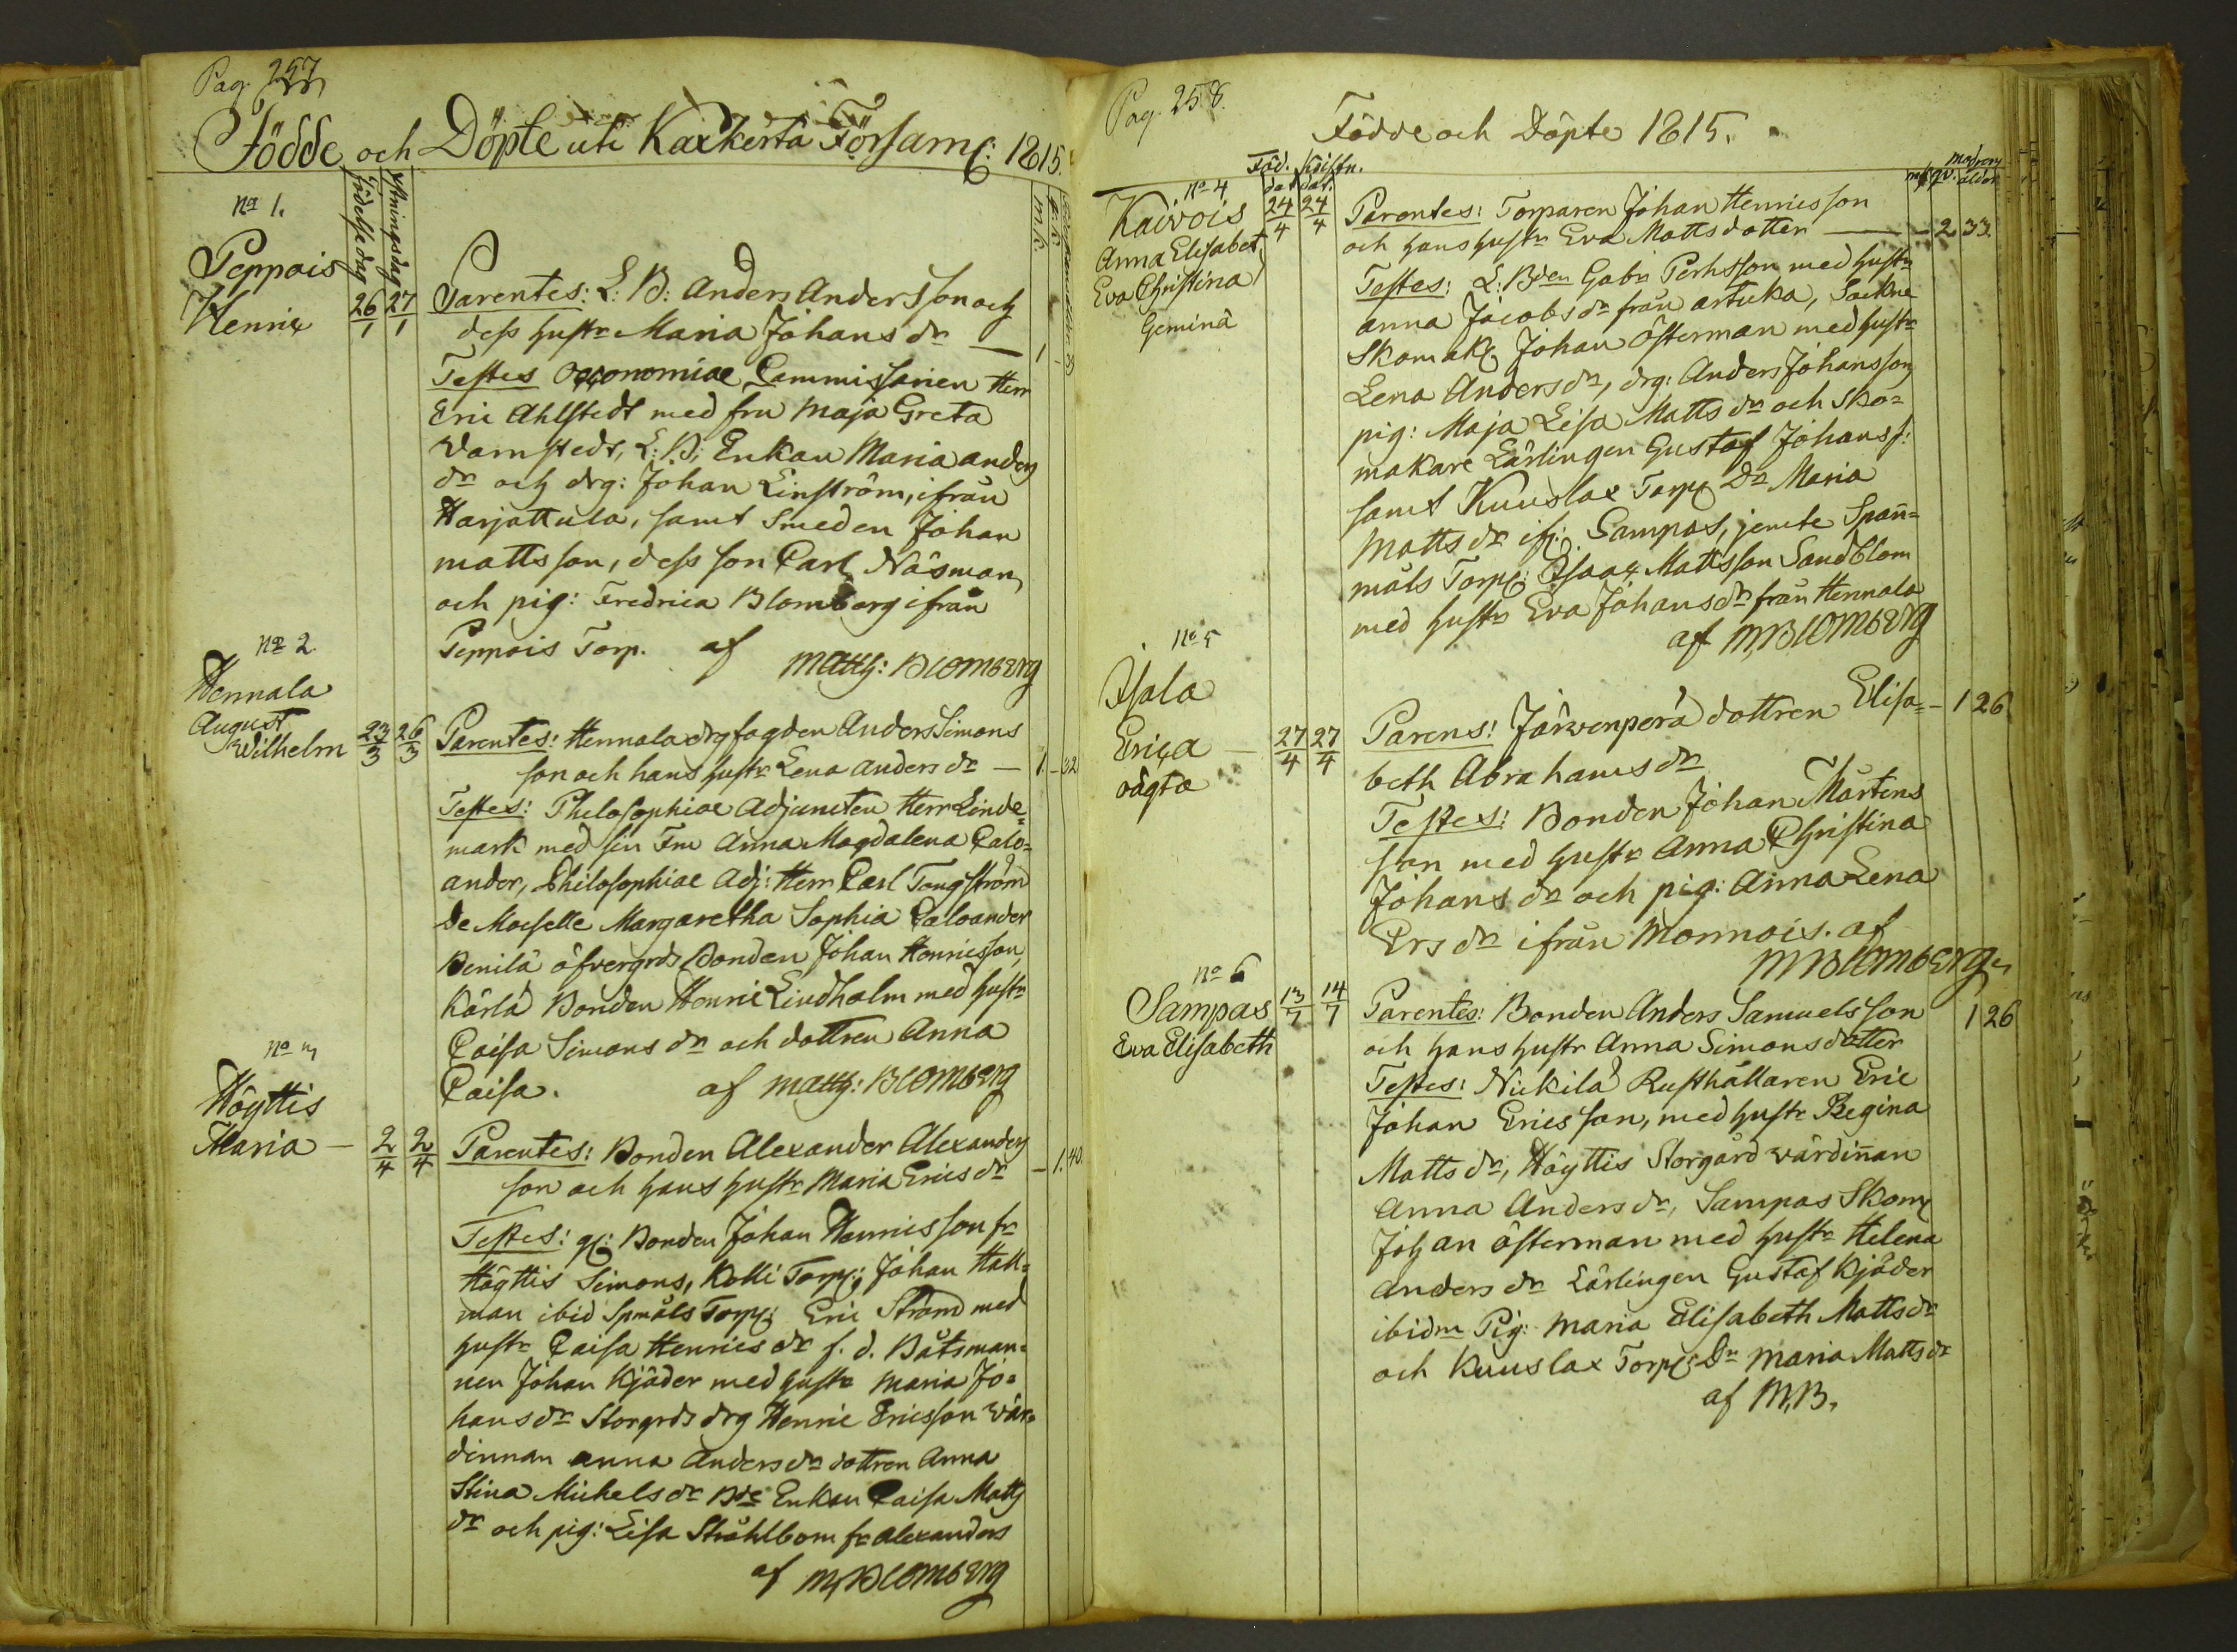 Pag. 257
Födde och Döpte uti Kaxkerta Församl: 1815.
födelsedag
m.k.
q.k.
No 1.
Peppois
Henric 26/1 27/1
Parentes: L: B: Anders Andersson och
dess hustr Maria Johans dr — 1
Testes Oeconomiae Commissarien Herr
Eric Ahlstedt med fru Maja Greta
Wamstedt, L: B: Enkan Maria anders
dr och drg: Johan Linström, ifrån
Harjattula, samt Smeden Johan
mattsson, dess son Carl Näsman,
och pig: Fredrica Blomberg ifrån
Peppois Torp. af
Matth: Blomberg
No 2.
Hennala
August
Wilhelm 23/3 26/3
Parentes: Hennala drg fogden Anders Simons
son och hans hustr Lena Anders dr — 1. – 32
Testes: Philosophiae Adjuncten Herr Linde=
mark med sin Fru Anna Magdalena Calo=
ander, Philosophiae Adj: Herr Carl Tengström
De Moiselle Margaretha Sophia Caloander
Benilä öfvergrds Bonden Johan Henricsson,
Kärlä Bonden Henric Lindholm med hustr
Caisa Simons dr och dottren Anna
Caisa. af Matth: Blomberg
No 3
Höyttis
Maria — 2/4 2/4
Parentes: Bonden Alexander Alexanders
son och hans hustr Maria Erics dr – 1. 40.
Testes: gl: Bonden Johan Henricsson fr
Höyttis Simons, Kolli Torp: Johan Hall=
man ibid Spmåls Torp: Eric Strand med
hustr Caisa Henrics dr f. d. Båtsman=
nen Johan Kjäder med hustr Maria Jo=
hans dr Storgrds drg Henric Ericsson Wär=
dinnan anna Anders dr dottren Anna
Stina Michels dr Bde Enkan Caisa Matts
dr och pig: Lisa Ståhlbom fr Alexanders
af M. Blomberg
Pag. 258.
Födde och Döpte 1815.
Föd. Kristn.
dat dat.
mk qv. modrens ålder
No 4
Kaivois 24/4 24/4
Anna Elisabet
Eva Christina
Gemina
Parentes: Torparen Johan Henricsson
och hans hustr Eva Mattsdotter — – 2 33
Testes: L: Bden Gabr Perhsson med hustr
anna Jacobs dr från artuka, Sockne
Skomak: Johan Österman med hustr
Lena Anders dr, drg: Anders Johansson,
pig: Maja Lisa Matts dr och Sko=
makare Lärlingen Gustaf Johanss:
samt Kuuslax Torp: Dr Maria
Matts dr ifr: Sampas, jemte Spañ=
måls Torp: Isaac Mattsson Sandblom
med hustr Eva Johansdr från Hennala
af M, Blomberg
No 5
Isala
Erica — 27/4 27/4
oägta
Parens: Järwenperä dottren Elisa= – 1 26
beth Abrahams dr
Testes: Bonden Johan Mårtens
son med hustr Anna Christina
Johans dr och pig: Anna Lena
Ers dr ifrån Monnois. af
M Blomberg
No 6
Sampas 13/7 14/7
Eva Elisabeth
Parentes: Bonden Anders Samuelsson 1 26
och hans hustr Anna Simonsdotter
Testes: Nickilä Rusthållaren Eric
Johan Ericsson, med hustr Regina
Matts dr, Höyttis Storgård wärdiñan
Anna Anders dr, Sampas Skom:
Johan Österman med hustr Helena
Anders dr Lärlingen Gustaf Kjäder
ibidm Pig: Maria Elisabeth Matts dr
och Kuuslax Torp: Dr Maria Matts dr
af M, B,